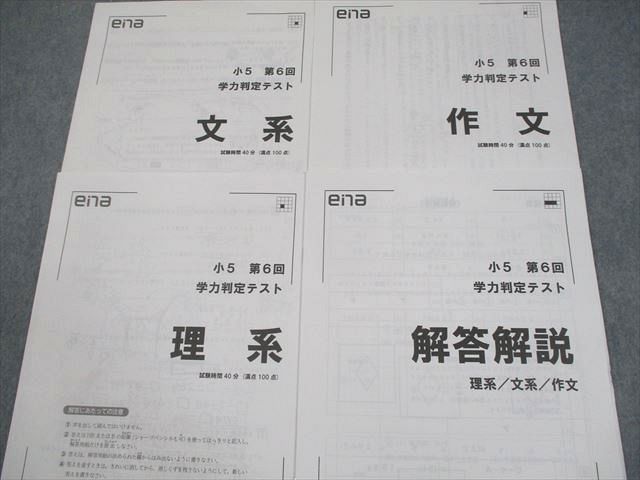 ena
小5 第6回
学力判定テスト
文 系
試験時間40分（満点100点）
ena
小5 第6回
学力判定テスト
作 文
試験時間40分（満点100点）
ena
小5 第6回
学力判定テスト
理 系
試験時間40分（満点100点）
解答にあたっての注意
① 声を出して読んではいけません。
ena
小5 第6回
学力判定テスト
解答解説
理系／文系／作文